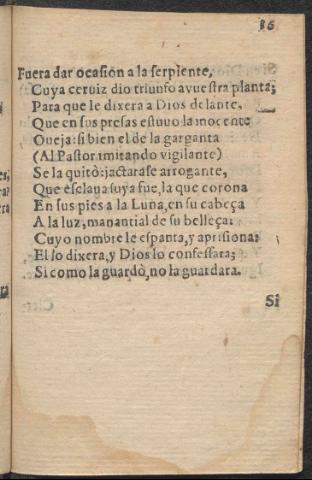 86
Fuera dar ocasion a la serpiente,
Cuya ceruiz dio triunfo a vuestra planta;
Para que le dixera a Dios delante,
Que en sus presas estuuo la inocente
Oueja: si bien el de la garganta
(Al Pastor imitando vigilante)
Se la quitò: jactarase arrogante,
Que esclaua suya fue, la que corona
En sus pies a la Luna, en su cabeça
A la luz, manantial de su belleça:
Cuyo nombre le espanta, y aprisiona:
El lo dixera, y Dios lo confessara;
Si como la guardò, no la guardara.
Si